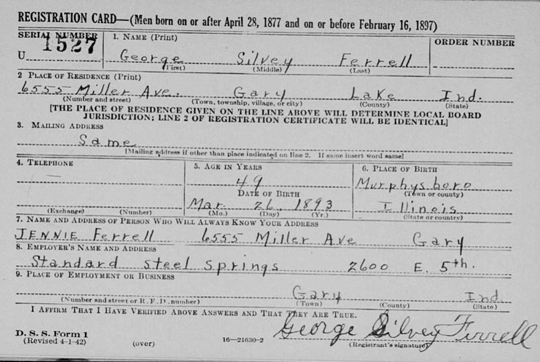 REGISTRATION CARD—(Men born on or after April 28, 1877 and on or before February 16, 1897)
SERIAL NUMBER 1. NAME (Print) ORDER NUMBER
U 1527 George Silvey Ferrell
(First) (Middle) (Last)
2. PLACE OF RESIDENCE (Print)
6555 Miller Ave. Gary Lake Ind.
(Number and street) (Town, township, village, or city) (County) (State)
[THE PLACE OF RESIDENCE GIVEN ON THE LINE ABOVE WILL DETERMINE LOCAL BOARD
JURISDICTION; LINE 2 OF REGISTRATION CERTIFICATE WILL BE IDENTICAL]
3. MAILING ADDRESS
Same
[Mailing address if other than place indicated on line 2. If same insert word same]
4. TELEPHONE 5. AGE IN YEARS 6. PLACE OF BIRTH
49 Murphysboro
DATE OF BIRTH (Town or county)
Mar. 26 1893 Illinois
(Exchange) (Number) (Mo.) (Day) (Yr.) (State or country)
7. NAME AND ADDRESS OF PERSON WHO WILL ALWAYS KNOW YOUR ADDRESS
JENNIE Ferrell 6555 Miller Ave Gary
8. EMPLOYER'S NAME AND ADDRESS
Standard Steel Springs 2600 E. 5th.
9. PLACE OF EMPLOYMENT OR BUSINESS
Gary Ind.
(Number and street or R. F. D. number) (Town) (County) (State)
I AFFIRM THAT I HAVE VERIFIED ABOVE ANSWERS AND THAT THEY ARE TRUE.
George Silvey Ferrell
D. S. S. Form 1
(Revised 4-1-42) (over) 16—21630-2 (Registrant's signature)